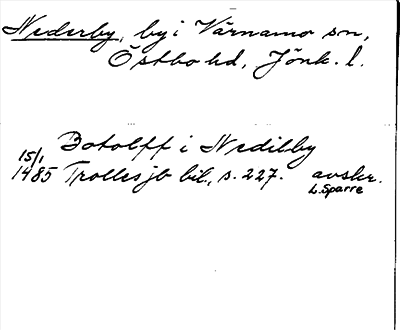 Nederby, by i Värnamo sn,
Östbo hd, Jönk. l.
Botolff i Nedilby
15/1
1485 Trolles jb bil., s. 227. avskr.
L. Sparre